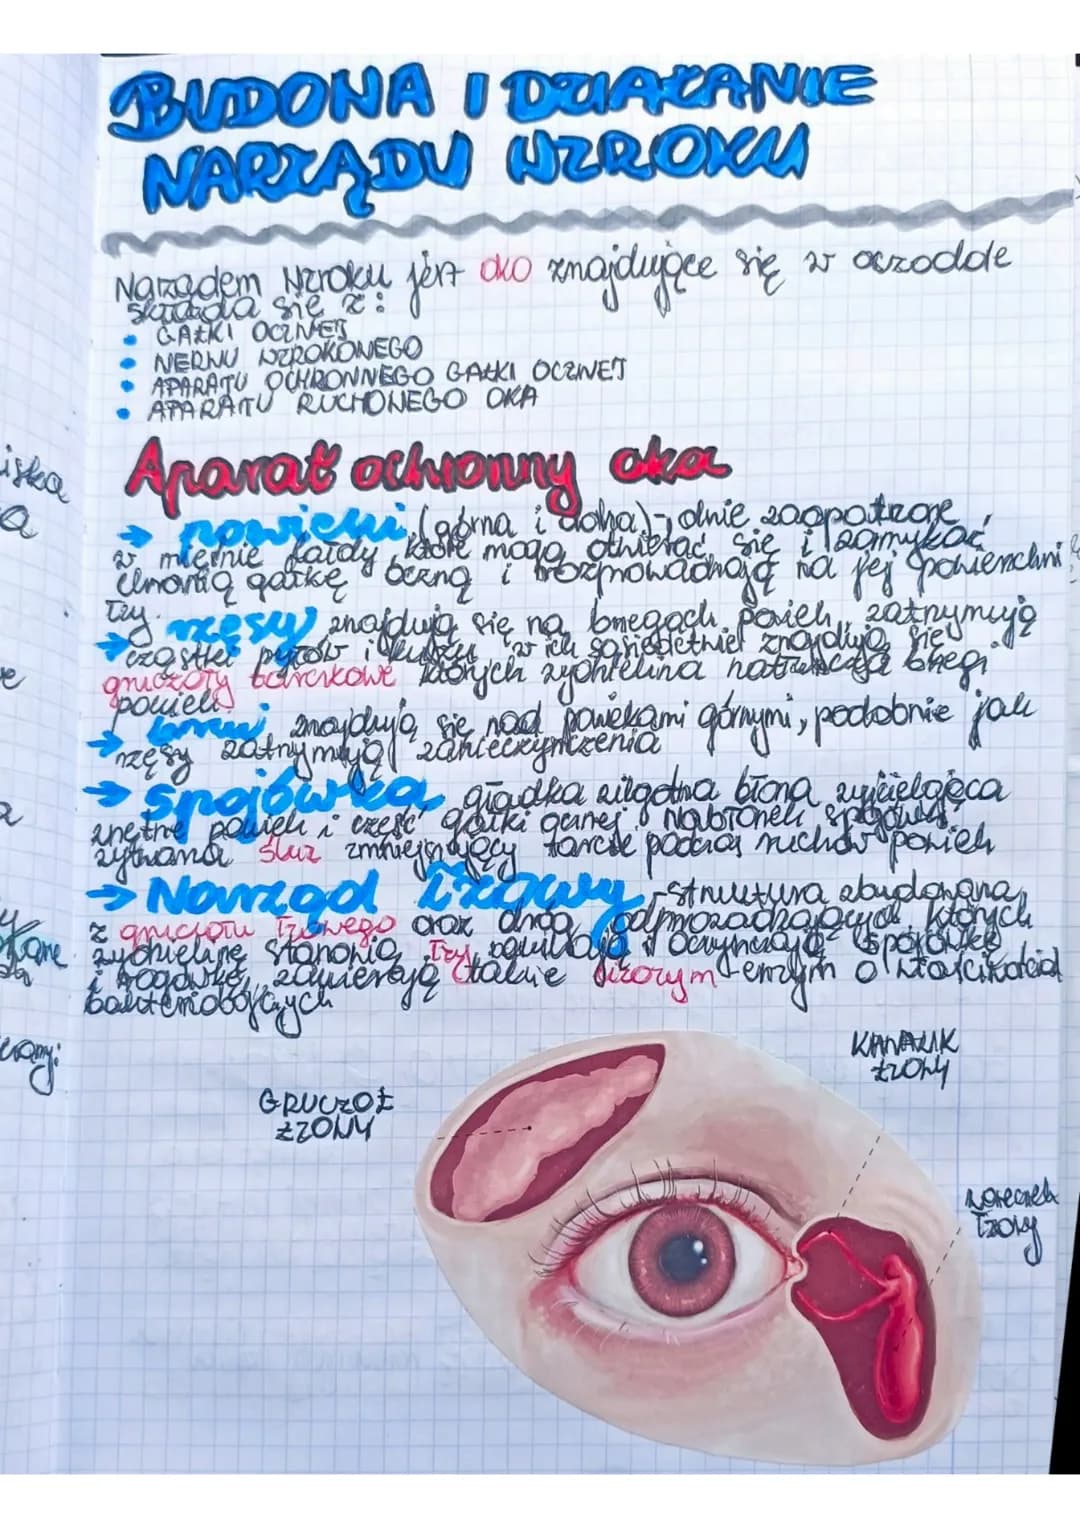 BUDOWA I DZIAŁANIE
NARZĄDU WZROKU
Narządem wzroku jest oko znajdujące się w oczodole
składa się z:
• GAŁKI OCZNEJ
• NERWU WZROKOWEGO
• APARATU OCHRONNEGO GAŁKI OCZNEJ
• APARATU RUCHOWEGO OKA
Aparat ochronny oka
→ powieki (górna i dolna) - zaopatrzone
w mięśnie fałdy które mogą otwierać się i zamykać
chronią gałkę oczną i rozprowadzają na jej powierzchni
łzy.
→ rzęsy znajdują się na brzegach powiek, zatrzymują
cząstki pyłów i kurzu w ich sąsiedztwie znajdują się
gruczoły których wydzielina natłuszcza brzegi
powiek.
→ brwi znajdują się nad powiekami górnymi, podobnie jak
rzęsy zatrzymują zanieczyszczenia
→ spojówka gładka wilgotna błona wyścielająca
powiek i część gałki ocznej. Nabłonek spojówki
wytwarza śluz zmniejszający tarcie podczas ruchów powiek
→ Narząd łzowy - struktura zbudowana
z gruczołu łzowego oraz dróg odprowadzających których
wydzielinę stanowią łzy, nawilżają i oczyszczają spojówkę
i rogówkę, zawierają także lizozym - enzym o właściwościach
bakteriobójczych
GRUCZOŁ
ŁZOWY
KANALIK
ŁZOWY
woreczek
łzowy